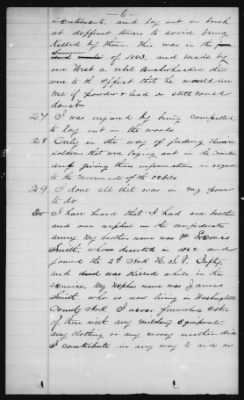 6
sentiments and lay out in bush
at different times to avoid being
killed by them. This was in the
Summer of 1863, and made by
one West a rebel Bushwhacker this
was to the effect that he would burn
me if powder & lead or stell could
do it
27 I was injured by being compelled
to lay out in the woods
28 Only in the way of feeding Union
soldiers that was laying out in the woods
and giving them information in regard
to the movements of the rebels
29 I done all that was in my power
to do
30 I have heard that I had one brother
and one nephew in the confederate
army. My brother name was
Smith, who deserted in 1862 and
joined the 2d Ark U.S.V. Infty,
and was killed while in the
service, My Nephew name was James
Smith who is now living in Washington
County Ark I never furnished either
of them with any military equipments,
any clothing or any money neither did
I contribute in any way to aid or